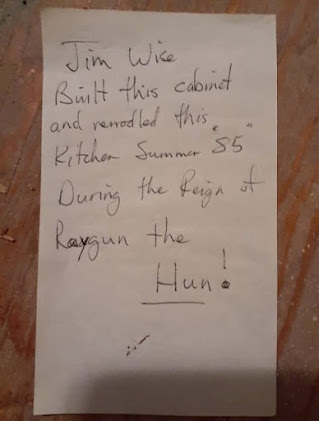 Jim Wise
Built this cabinet
and remodled this
Kitchen Summer "85"
During the Reign of
Raygun the
Hun!